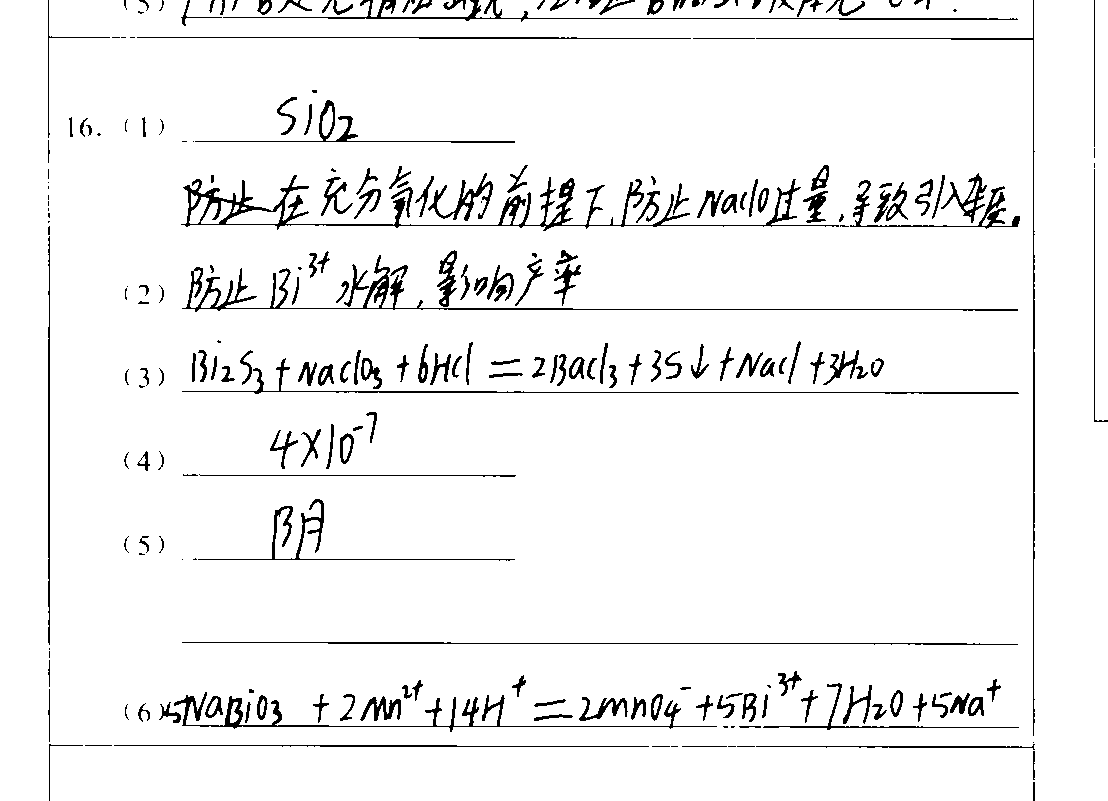 16. (1) SiO₂
防止在充分氧化的前提下,防止NaClO过量,导致引入杂质。
(2) 防止Bi³⁺水解,影响产率
(3) Bi₂S₃+NaClO₃+6HCl=2BaCl₃+3S↓+NaCl+3H₂O
(4) 4×10⁻⁷
(5) 阴
(6) 5NaBiO₃+2Mn²⁺+14H⁺=2MnO₄⁻+5Bi³⁺+7H₂O+5Na⁺